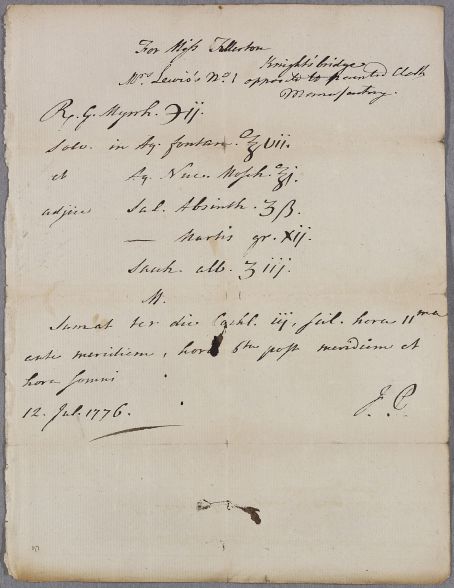 For Miss Fullerton
Knightsbridge
Mrs Lewis's No 1 opposite to painted Cloth
Manufactory.
Rx. G. Myrrh. ʒij.
Solv. in Aq. fontan. ℥vii.
et Aq. Nuc. Mosch. ℥j.
adjice Sal. Absinth. ʒß.
— Martis gr. xij.
Sacch. alb. ʒiij.
M.
Sumat ter die Cochl. iij, scil. hora 11ma
ante meridiem, hora 6ta post meridiem et
hora somni
12. Jul. 1776. J. C.